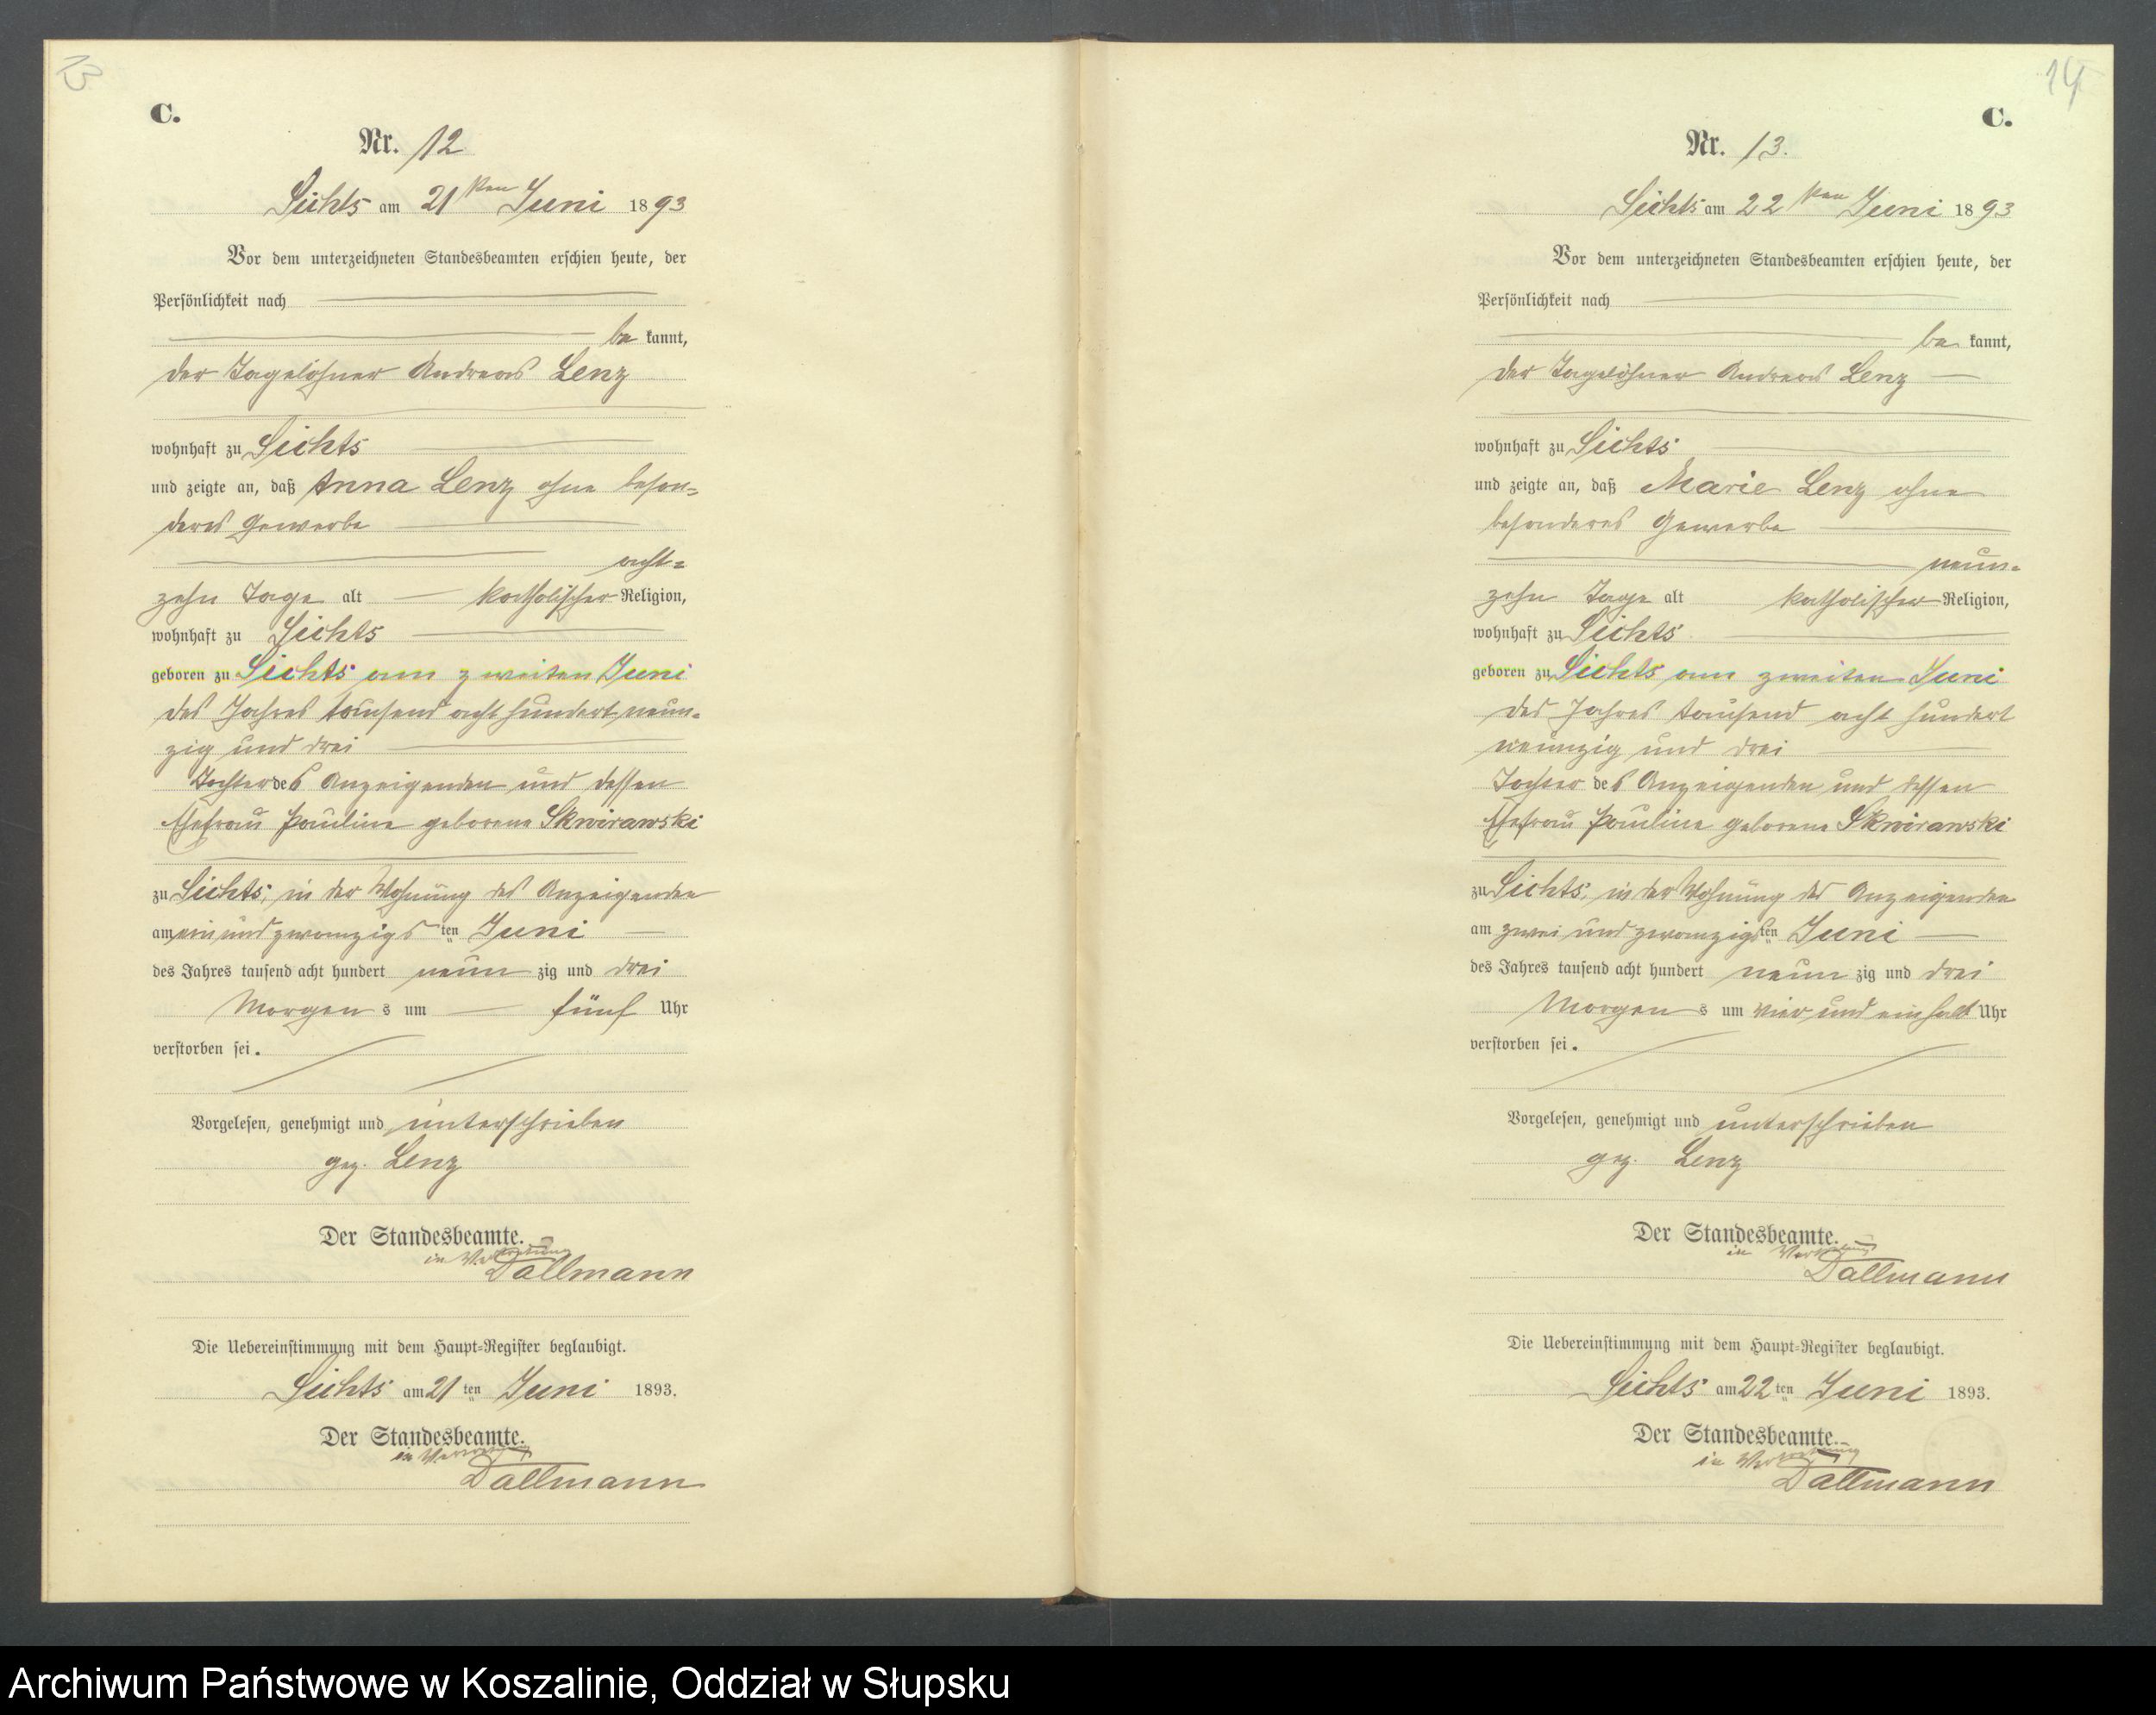 13
C.
Nr. 12
Lichts am 21ten Juni 1893
Vor dem unterzeichneten Standesbeamten erschien heute, der
Persönlichkeit nach
be kannt,
der Tagelöhner Andreas Lenz
wohnhaft zu Lichts
und zeigte an, daß Anna Lenz ohne beson=
deres Gewerbe
acht=
zehn Tage alt katholischer Religion,
wohnhaft zu Lichts
geboren zu Lichts am zweiten Juni
des Jahres tausend acht hundert neun=
zig und drei
Tochter des Anzeigenden und dessen
Ehefrau Pauline geborene Skwirawski
zu Lichts, in der Wohnung des Anzeigenden
am ein und zwanzigsten Juni
des Jahres tausend acht hundert neun zig und drei
Morgen s um fünf Uhr
verstorben sei.
Vorgelesen, genehmigt und unterschrieben
gez. Lenz
Der Standesbeamte.
in Vertretung
Dallmann
Die Uebereinstimmung mit dem Haupt=Register beglaubigt.
Lichts am 21 ten Juni 1893.
Der Standesbeamte.
in Vertretung
Dallmann
14
C.
Nr. 13.
Lichts am 22ten Juni 1893
Vor dem unterzeichneten Standesbeamten erschien heute, der
Persönlichkeit nach
be kannt,
der Tagelöhner Andreas Lenz
wohnhaft zu Lichts
und zeigte an, daß Marie Lenz ohne
besonderes Gewerbe
neun=
zehn Tage alt katholischer Religion,
wohnhaft zu Lichts
geboren zu Lichts am zweiten Juni
des Jahres tausend acht hundert
neunzig und drei
Tochter des Anzeigenden und dessen
Ehefrau Pauline geborene Skwirawski
zu Lichts, in der Wohnung des Anzeigenden
am zwei und zwanzigsten Juni
des Jahres tausend acht hundert neun zig und drei
Morgen s um vier und ein halb Uhr
verstorben sei.
Vorgelesen, genehmigt und unterschrieben
gez. Lenz
Der Standesbeamte.
in Vertretung
Dallmann
Die Uebereinstimmung mit dem Haupt=Register beglaubigt.
Lichts am 22 ten Juni 1893.
Der Standesbeamte.
in Vertretung
Dallmann
Archiwum Państwowe w Koszalinie, Oddział w Słupsku